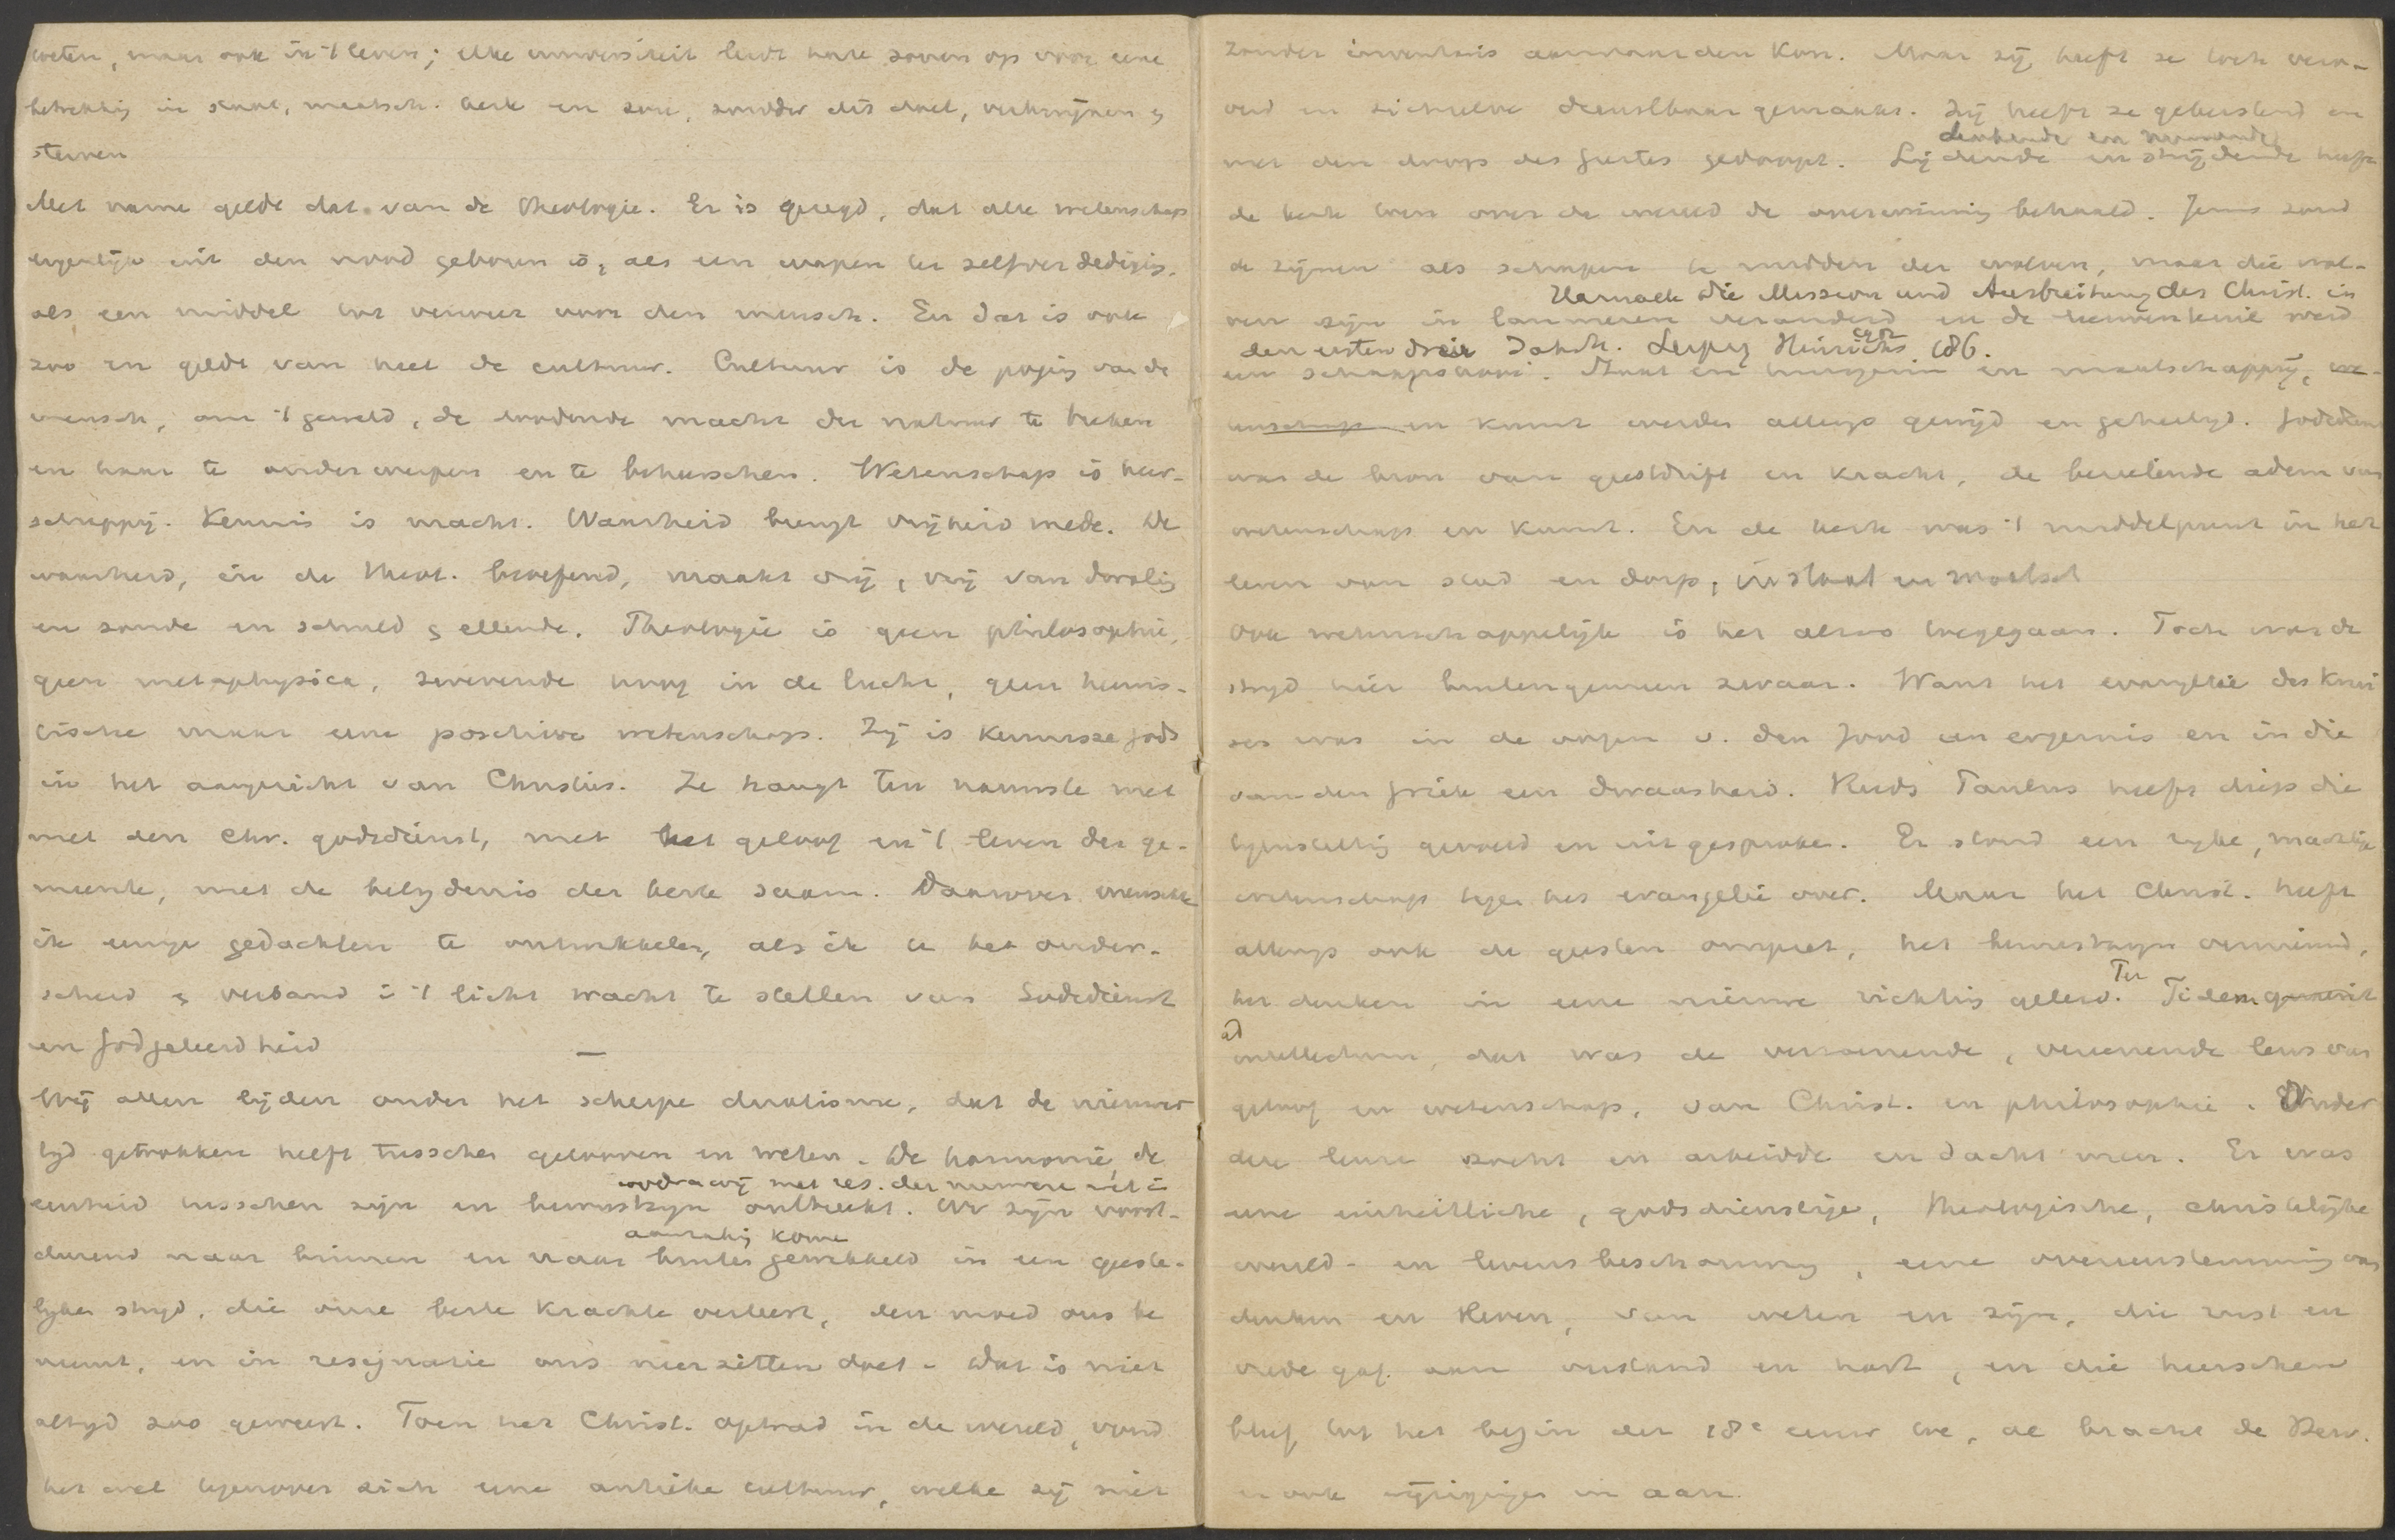 weten, maar ook in 't leven; elke universiteit leidt hare zonen op voor eene
betrekking in staat, maatsch. kerk en zou, zonder dit doel, verkwijnen &
sterven
Met name geldt dat van de Theologie. Er is gezegd, dat alle wetenschap
eigenlijk uit den nood geboren is, als een wapen ter zelfverdediging,
als een middel tot verweer voor den mensch. En dat is ook
zoo en geldt van heel de cultuur. Cultuur is de poging van de
mensch, om 't geweld, de doodende macht der natuur te breken
en haar te onderwerpen en te beheerschen. Wetenschap is heer-
schappij. Kennis is macht. Waarheid brengt vrijheid mede. De
waarheid, in de Theol. beoefend, maakt vrij, vrij van dwaling
en zonde en schuld & ellende. Theologie is geen philosophie,
geen metaphysica, zwevende hoog in de lucht, geen heuris-
tische maar eene positieve wetenschap. Zij is kennisse Gods
in het aangezicht van Christus. Ze hangt ten nauwste met
met den Chr. godsdienst, met het geloof en 't leven der ge-
meente, met de belijdenis der kerk saam. Daarover wenschte
ik eenige gedachten te ontwikkelen, als ik u het onder-
scheid & verband in 't licht tracht te stellen van Godsdienst
en Godgeleerdheid
—
Wij allen lijden onder het scherpe dualisme, dat de nieuwe
tijd getrokken heeft tusschen gelooven en weten. De harmonie, de
zoodra wij met res. der nieuwere wet. in
eenheid tusschen zijn en bewustzijn ontbreekt. We zijn voort-
aanraking komen
durend naar binnen en naar buiten gewikkeld in een geeste-
lijken strijd, die onze beste krachten verteert, den moed ons be
neemt, en in resignatie ons neerzitten doet. Dat is niet
altijd zoo geweest. Toen het Christ. optrad in de wereld, vond
het wel tegenover zich eene antieke cultuur, welke zij niet
zonder inventaris aanvaarden kon. Maar zij heeft ze toch vero-
verd en zichzelve dienstbaar gemaakt. Zij heeft ze gekerstend en
denkende en
met den doop des Geestes gedoopt. Lijdende en strijdende heeft
de kerk toen over de wereld de overwinning behaald. Jezus zond
de zijnen als schapen te midden der wolven, maar die wol-
Harnack Die Mission und Ausbreitung des Christ. in
ven zijn in lammeren veranderd en de leeuwenkuil werd
den ersten drei Jahrh. Leipzig Hinrichs 186.
een schaapskooi. Staat en huisgezin en maatschappij, we-
tenschap en kunst werden allengs gewijd en geheiligd. Godsdienst
was de bron van geestdrift en kracht, de bezielende adem van
wetenschap en kunst. En de kerk was 't middelpunt in het
leven van stad en dorp, in staat en maatsch
Ook wetenschappelijk is het alzoo toegegaan. Toch was de
strijd hier buitengemeen zwaar. Want het evangelie des krui
ses was in de oogen v. den Jood een ergernis en in die
van den Griek een dwaasheid. Reeds Paulus heeft diep die
tegenstelling gevoeld en uitgesproken. Er stond een rijke, machtige
wetenschap tegen het evangelie over. Maar het Christ. heeft
allengs ook de geesten omgezet, het bewustzijn vernieuwd,
het denken in eene nieuwe richting geleid. Per Fidem
ad
intellectum, dat was de verzoenende, vereenende leus van
geloof en wetenschap, van Christ. en philosophie. Onder
deze leuze zocht en arbeidde en dacht men. Er was
eene einheitliche, godsdienstige, theologische, christelijke
wereld- en levensbeschouwing, eene overeenstemming van
denken en leven, van weten en zijn, die rust en
vrede gaf aan verstand en hart, en die heerschen
bleef tot het begin der 18e eeuw toe, al bracht de Herv.
er ook wijzigingen in aan.